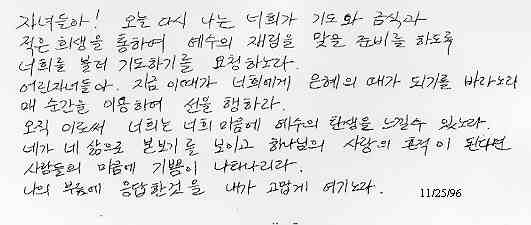 자녀들아! 오늘 다시 나는 너희가 기도와 금식과
적은 희생을 통하여 예수의 재림을 맞을 준비를 하도록
너희를 불러 기도하기를 요청하노라.
어린자녀들아. 지금 이때가 너희에게 은혜의 때가 되기를 바라노라
매 순간을 이용하여 선을 행하라.
오직 이로써 너희는 너희 마음에 예수의 탄생을 느낄수 있노라.
네가 네 삶으로 본보기를 보이고 하나님의 사랑의 흔적이 된다면
사람들의 마음에 기쁨이 나타나리라.
나의 부름에 응답한것을 내가 고맙게 여기노라. 11/25/96